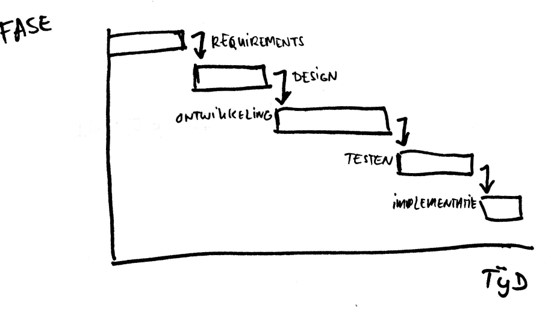 FASE
REQUIREMENTS
DESIGN
ONTWIKKELING
TESTEN
IMPLEMENTATIE
TijD